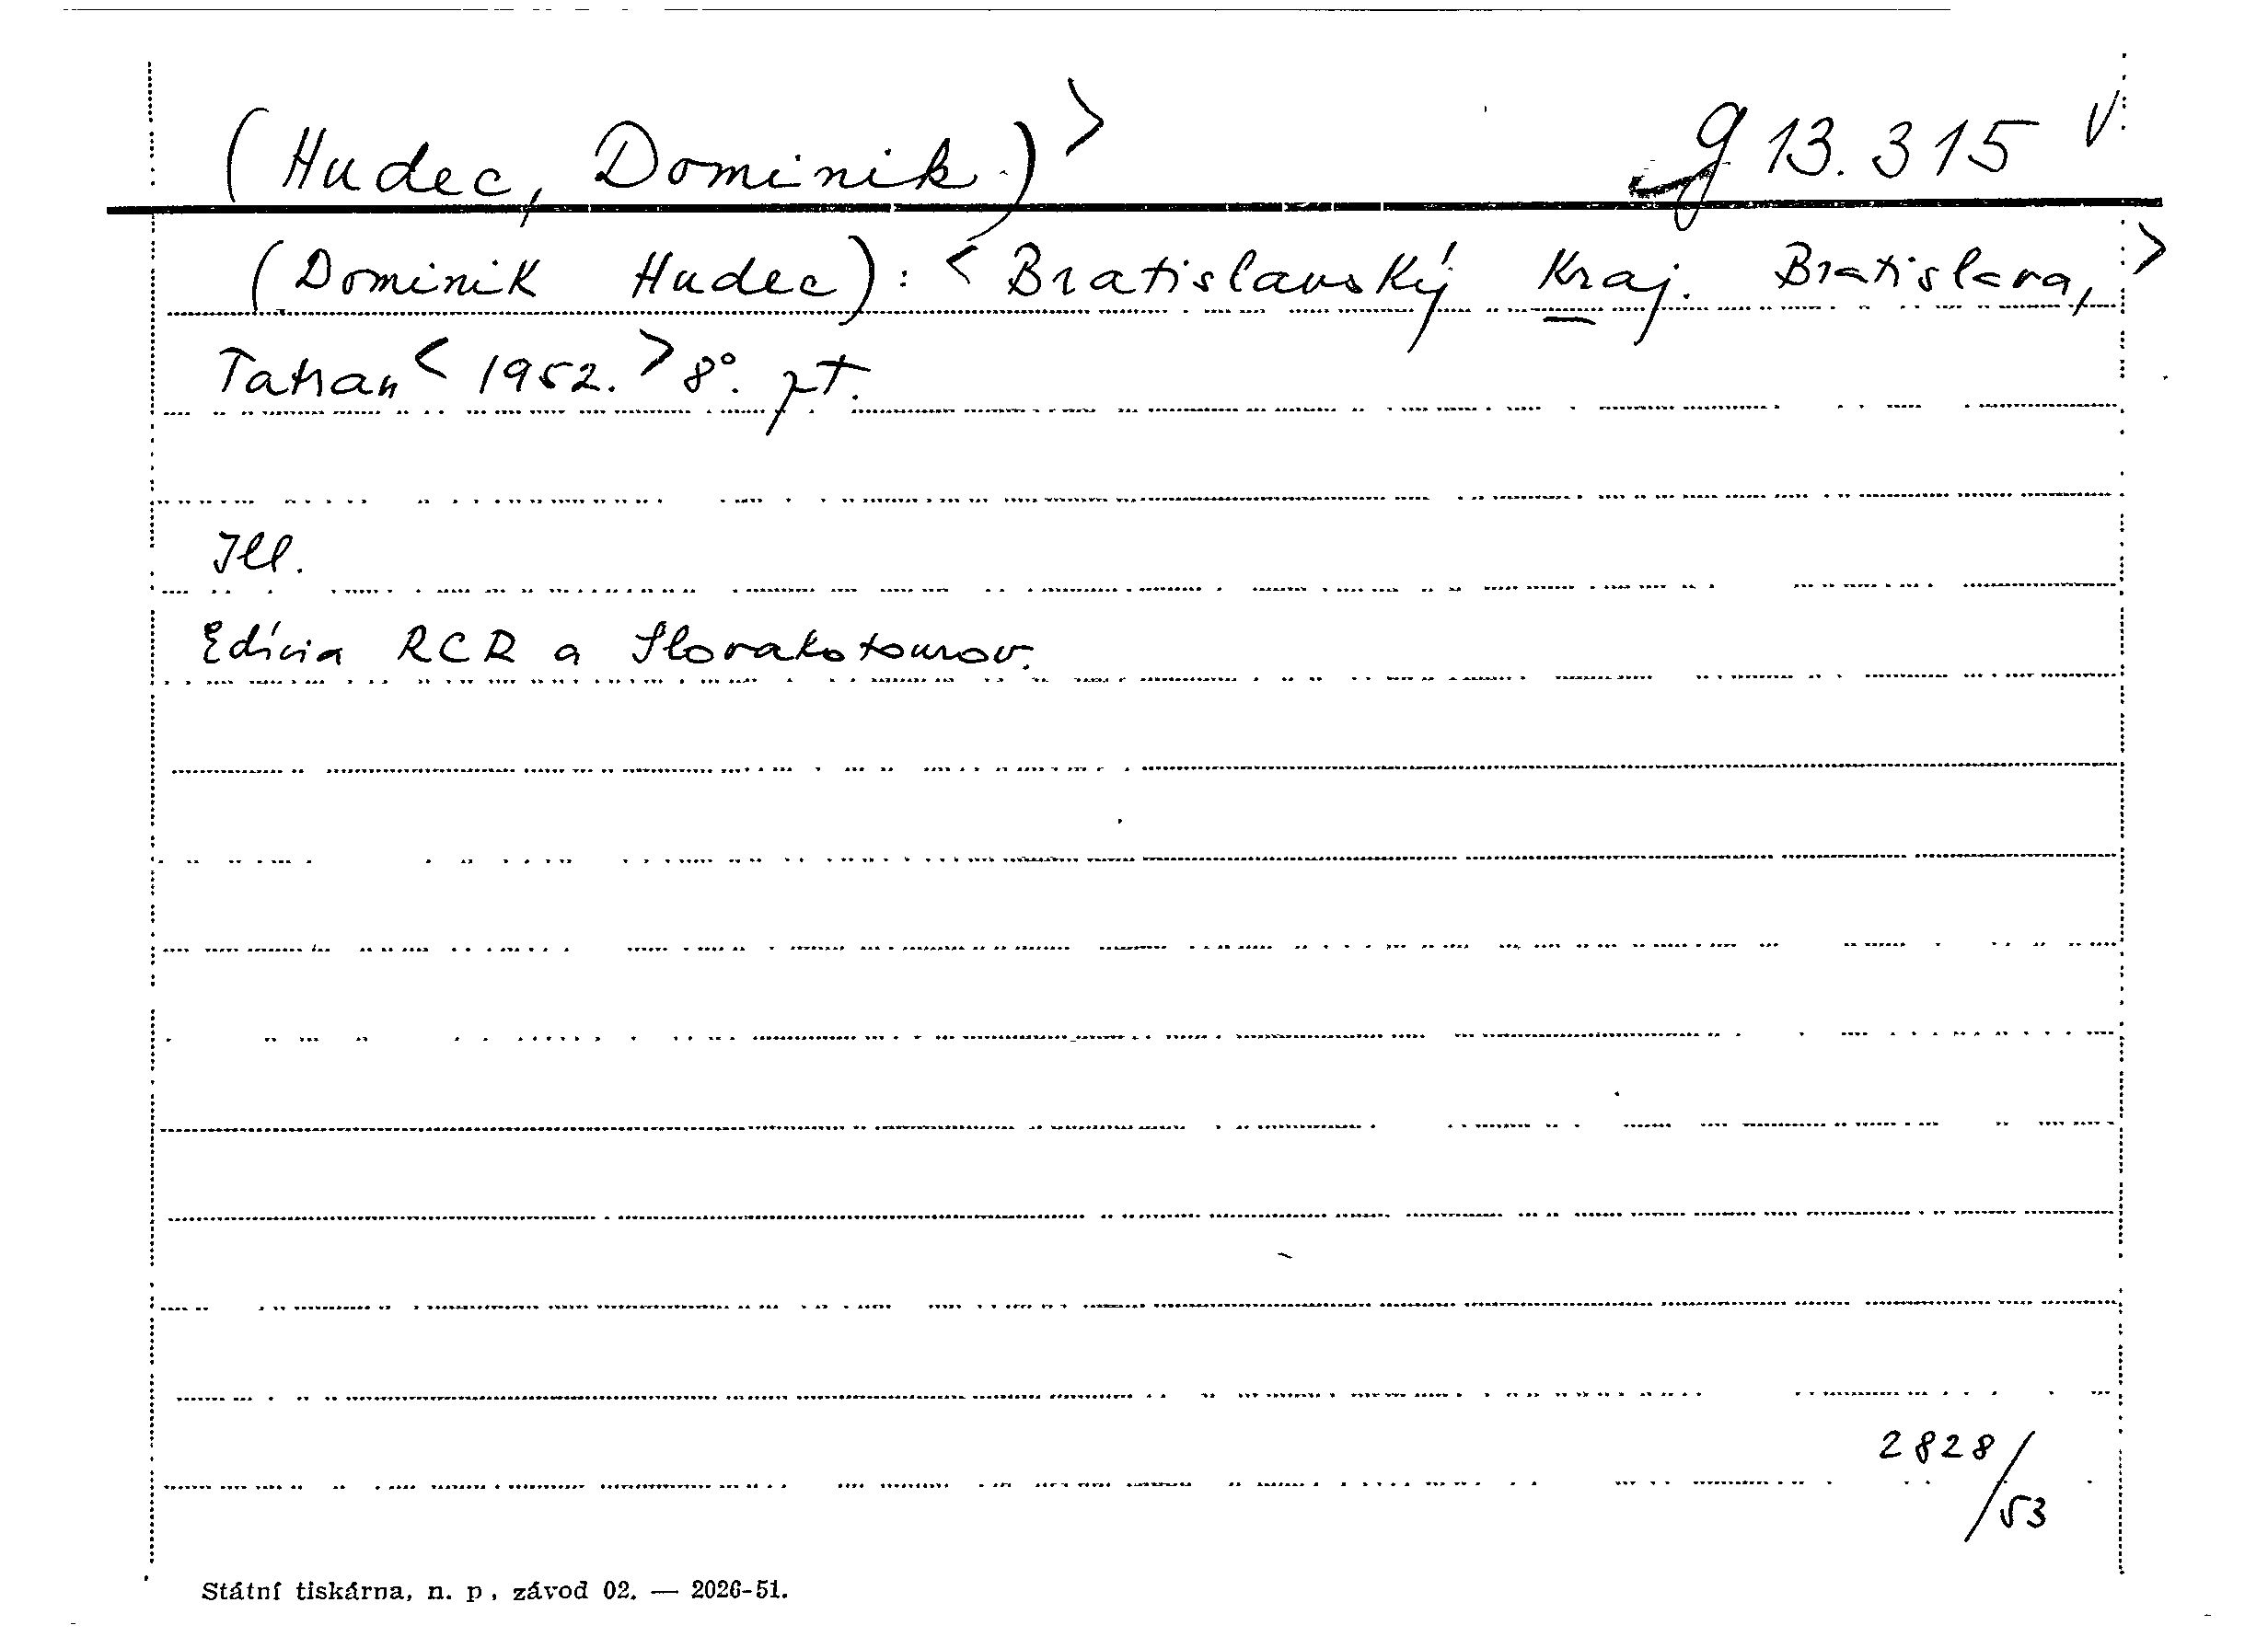 (Hudec, Dominik)> g 13.315 V
(Dominik Hudec): <Bratislavský Kraj. Bratislava,>
Tatran <1952.> 8°. pt.
Ill.
Edícia RCR a Slovakotourov.
2828/53
Státní tiskárna, n. p, závod 02. — 2026-51.